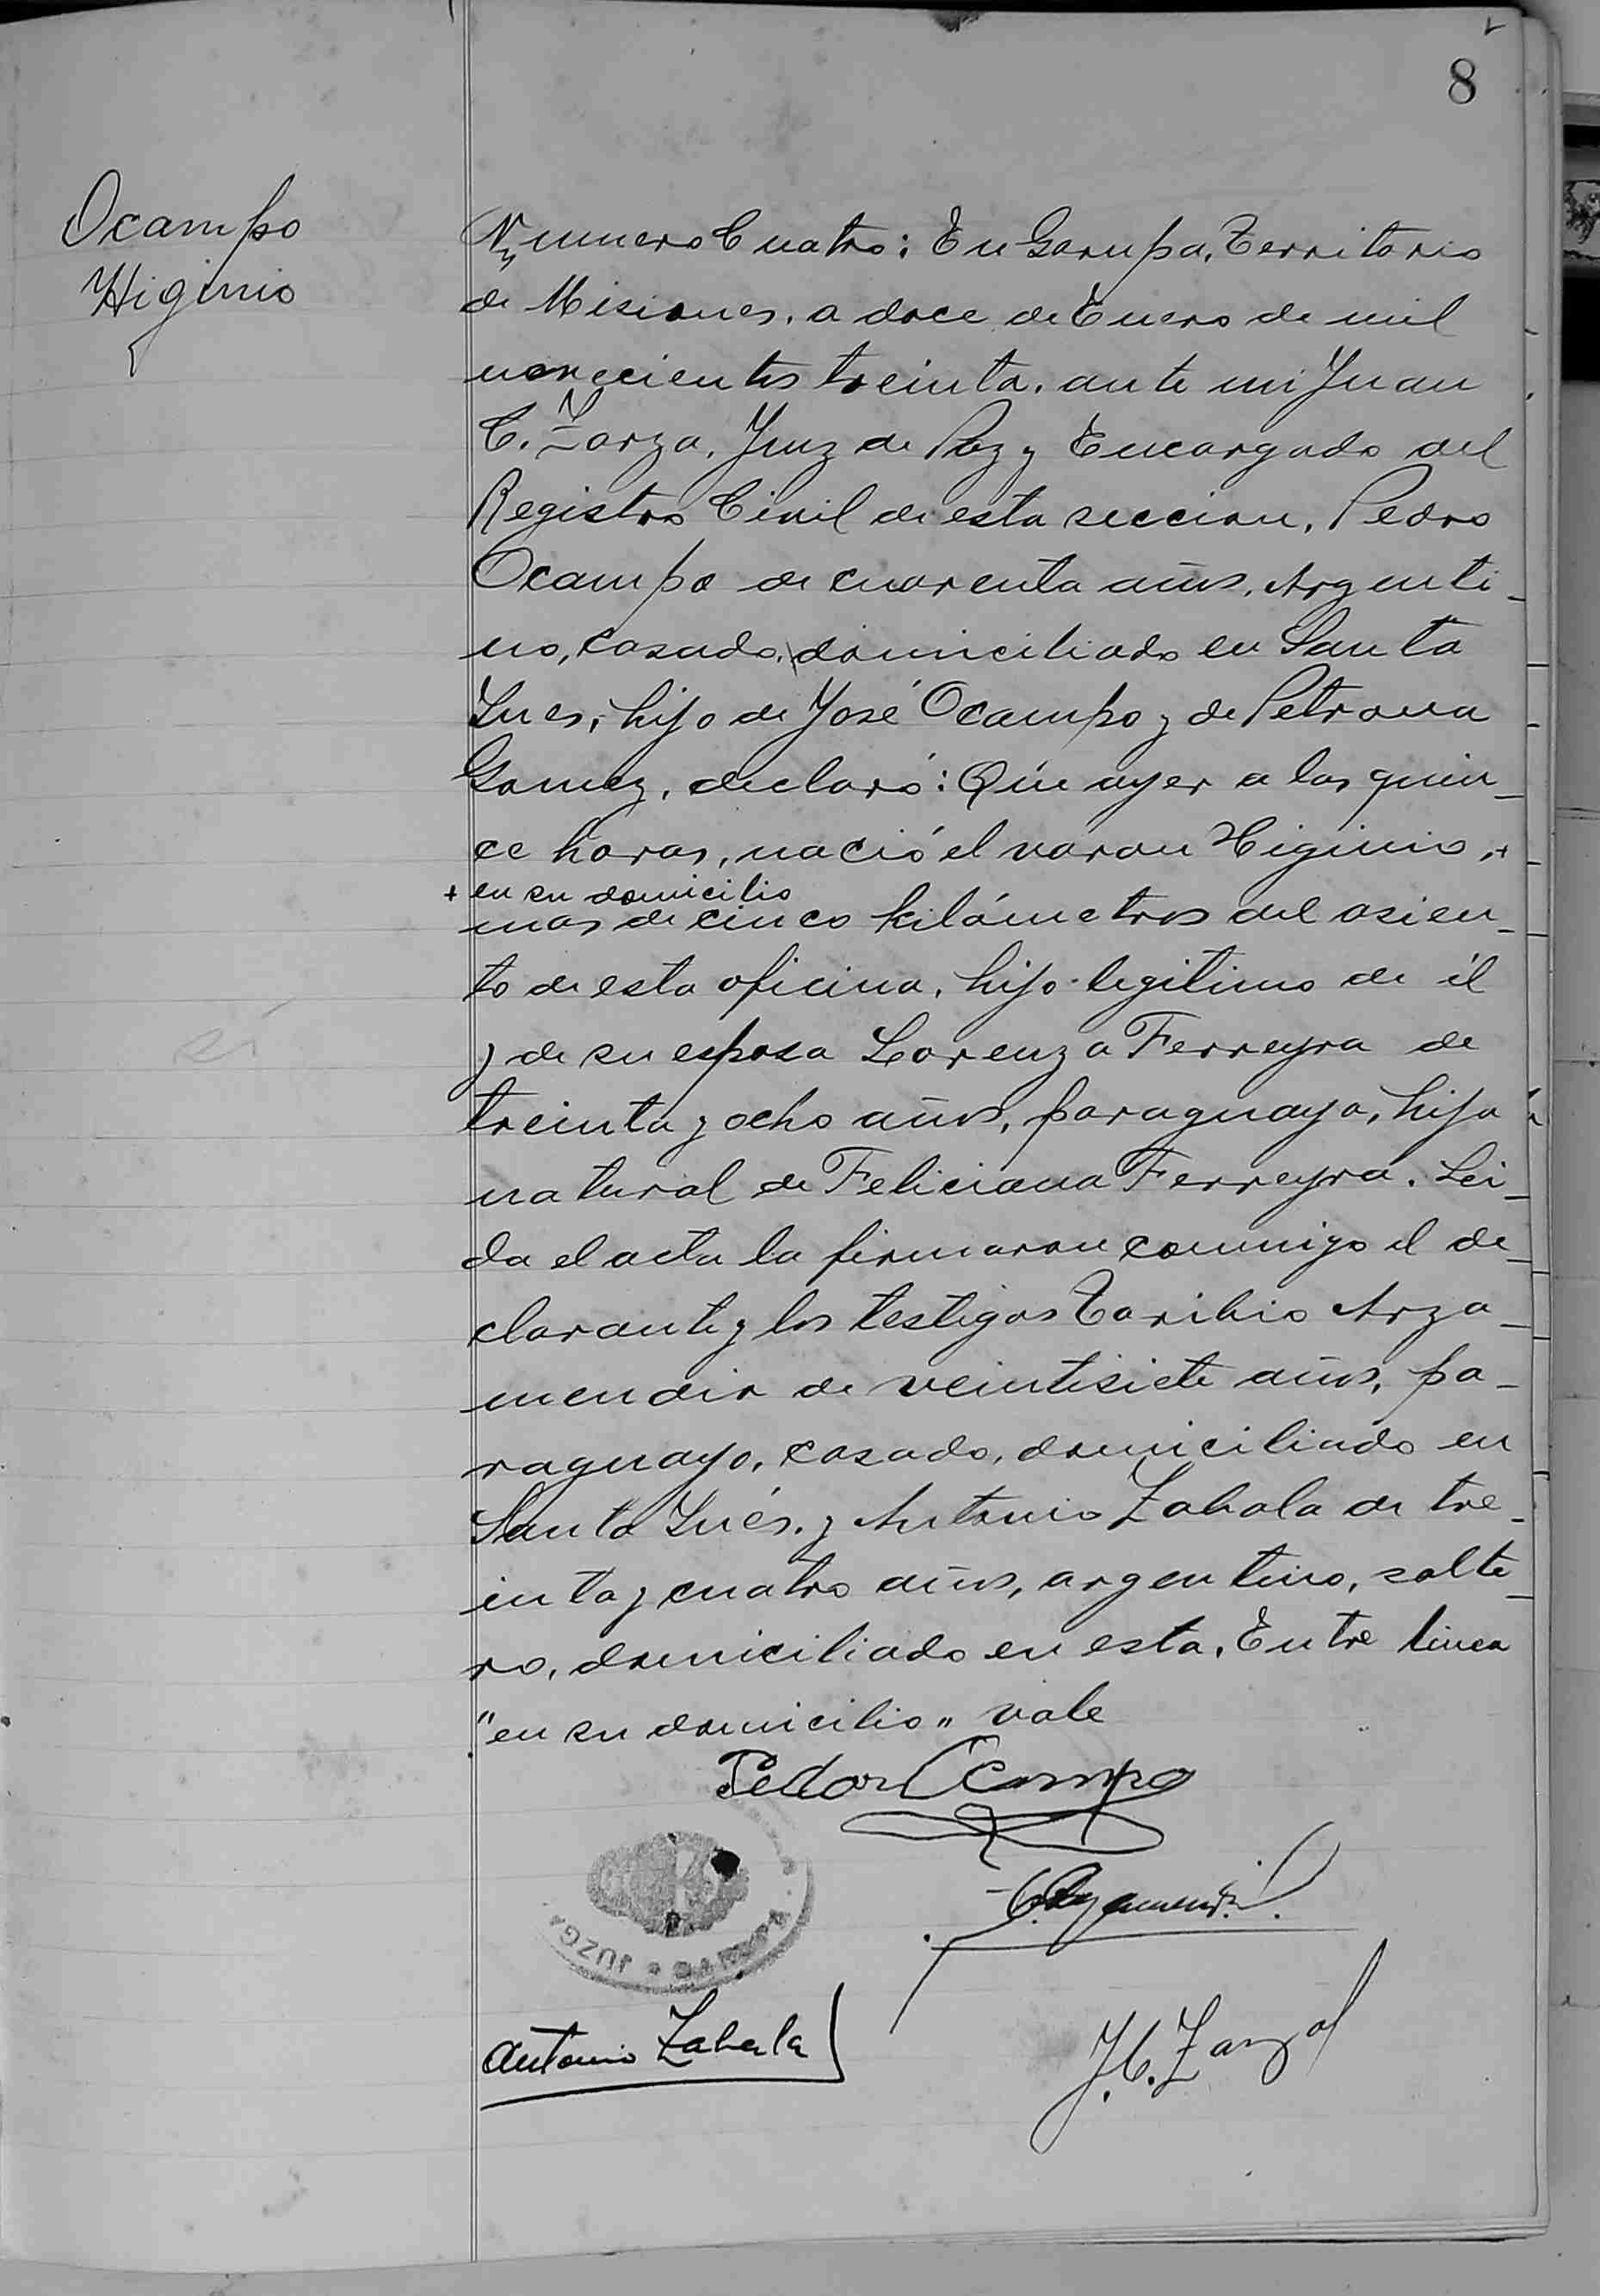 8
Ocampo
Higinio
Numero Cuatro: En Garupa, Territorio
de Misiones, a doce de Enero de mil
novecientos treinta, ante mi Juan
C. Zarza, Juez de Paz y Encargado del
Registro Civil de esta seccion, Pedro
Ocampo de cuarenta años, Argenti-
no, casado, domiciliado en Santa
Ines, hijo de José Ocampo y de Petrona
Gomez, declaró: Que ayer a las quin-
ce horas, nació el varon Higinio, +
+ en su domicilio
mas de cinco kilómetros del asien-
to de esta oficina, hijo legitimo de él
y de su esposa Lorenza Ferreyra de
treinta y ocho años, paraguaya, hija
natural de Feliciana Ferreyra. Lei-
da el acta la firmaron conmigo el de-
clarante y los testigos Toribio Arza-
mendia de veintisiete años, pa-
raguayo, casado, domiciliado en
Santa Inés, y Antonio Zabala de tre-
inta y cuatro años, argentino, solte-
ro, domiciliado en esta. Entre linea
"en su domicilio" vale
Pedor Ocampo
JUZG
Antonio Zabala
J. C. Zarza
sí